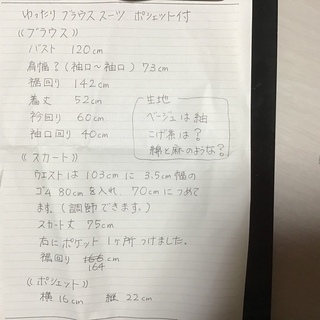 ゆったり ブラウススーツ ポシェット付
《ブラウス》
バスト 120cm
肩幅?(袖口~袖口) 73cm
裾回り 142cm
着丈 52cm
衿回り 60cm
袖口回り 40cm
生地
ベージュは紬
こげ茶は?
綿と麻のような?
《スカート》
ウエストは103cmに 3.5cm幅の
ゴム 80cmを入れ、70cmにつめて
ます。(調節できます。)
スカート丈 75cm
右にポケット1ヶ所つけました。
裾回り 164cm
《ポシェット》
横 16cm 縦 22cm